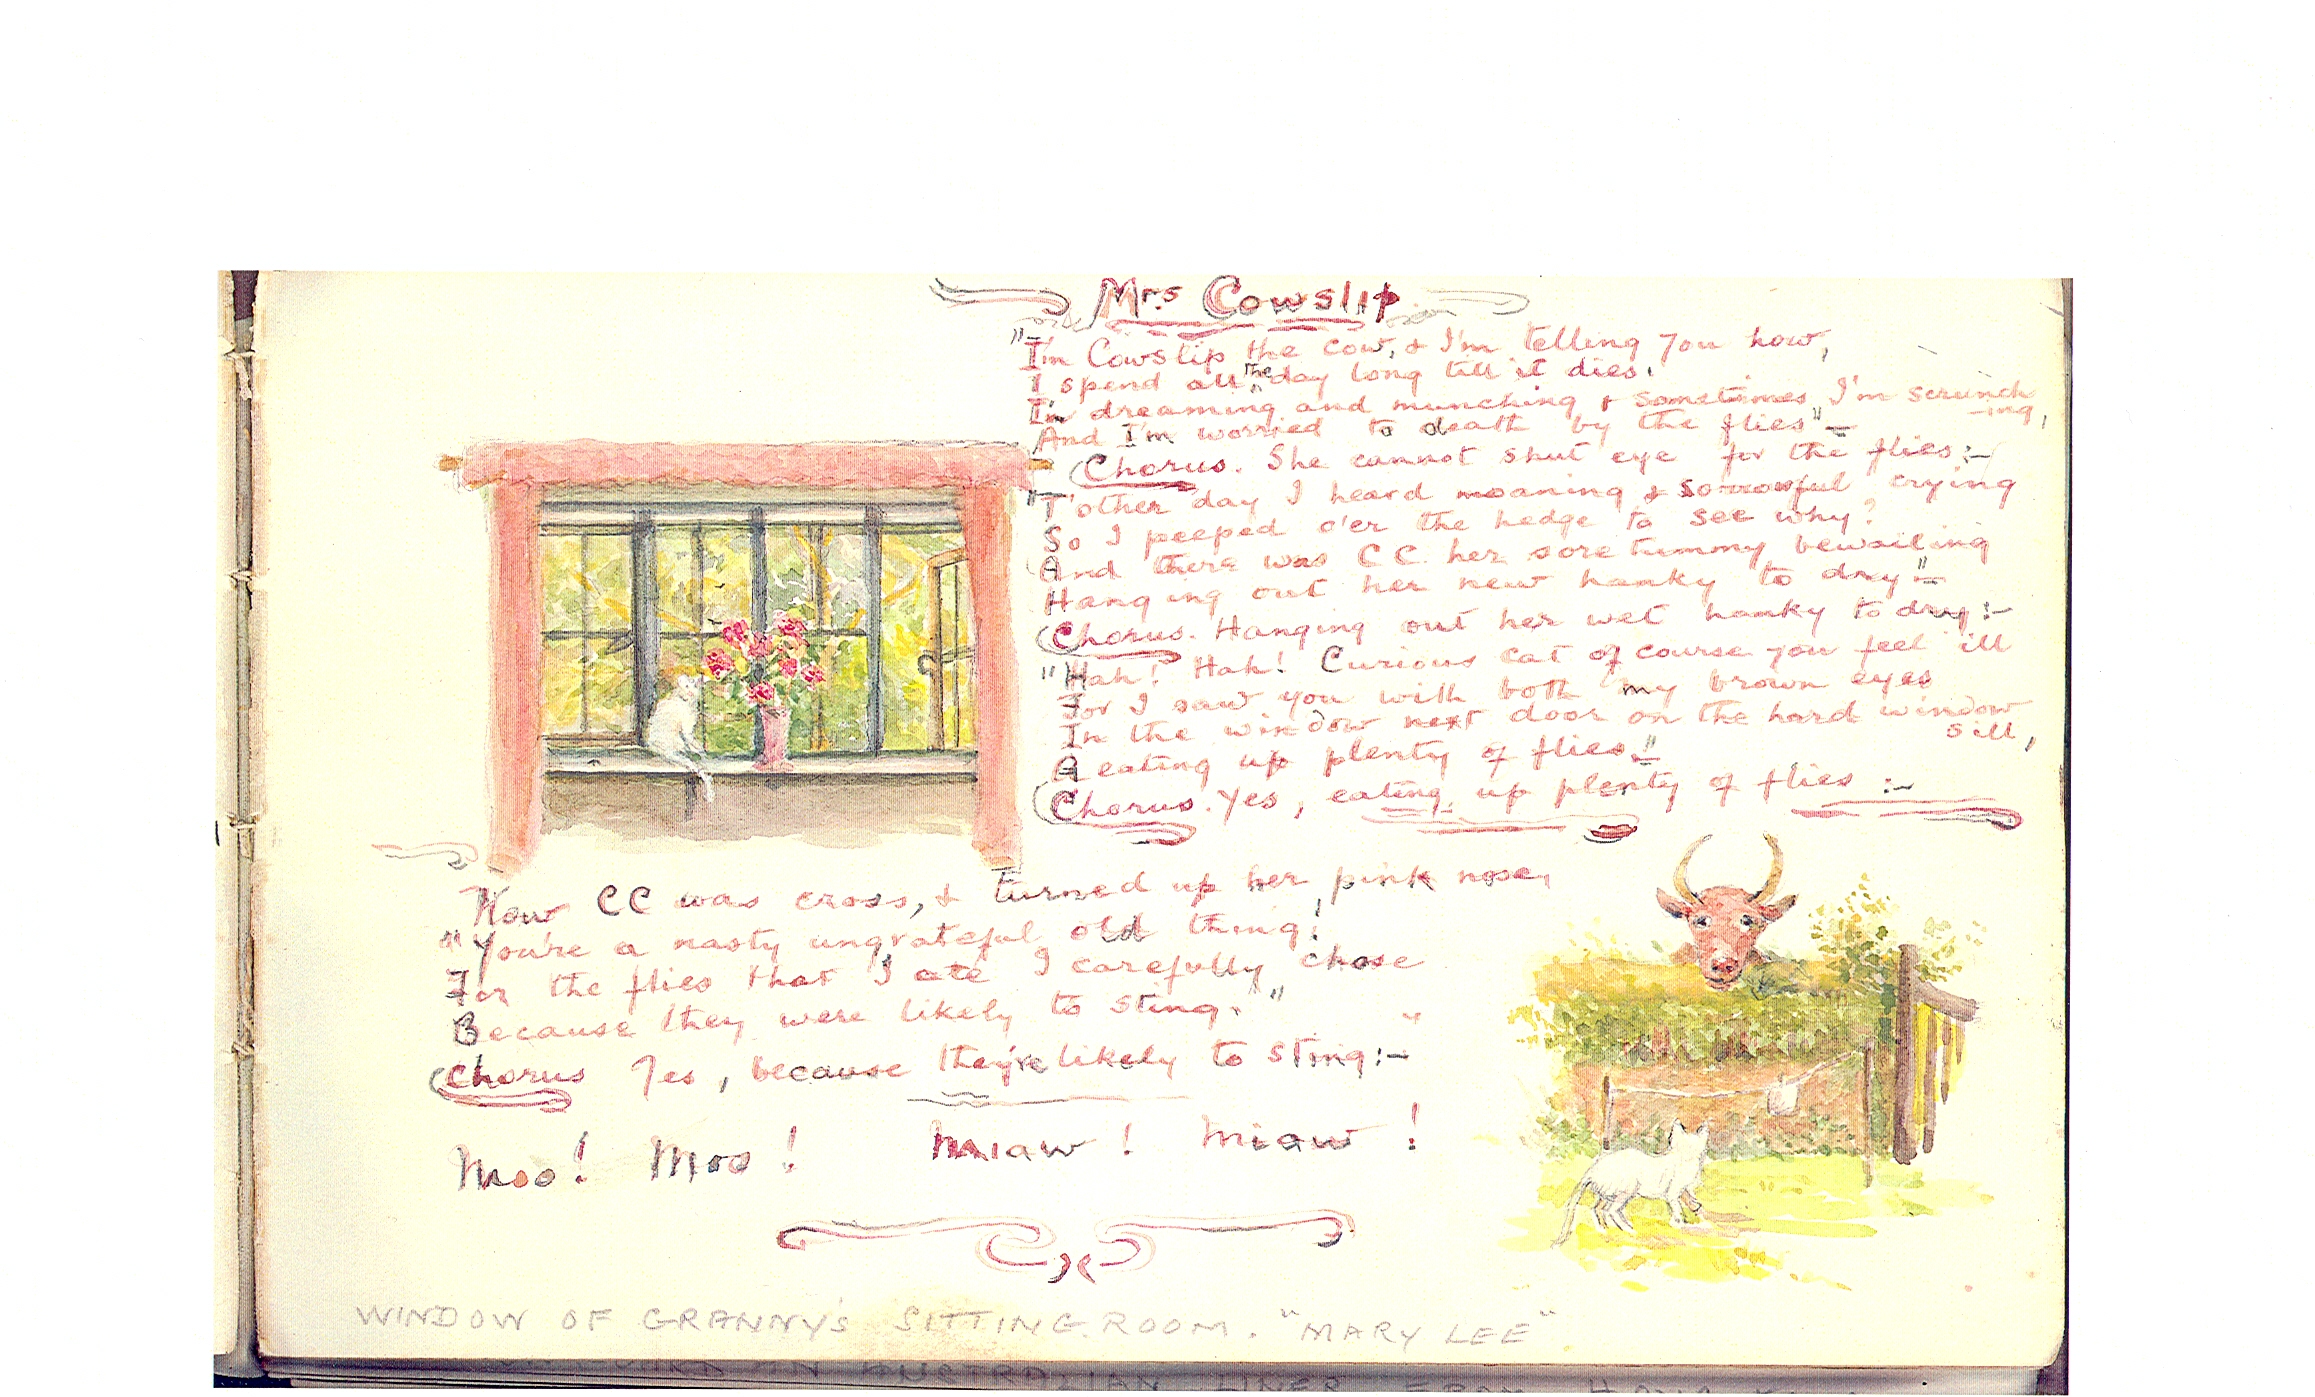 Mrs Cowslip
"I'm Cowslip the cow, & I'm telling you how,
I spend all the day long till it dies.
I'm dreaming and munching & sometimes I'm scrunch
-ing,
And I'm worried to death by the flies" –
Chorus. She cannot shut eye for the flies :–
"T'other day I heard moaning & sorrowful crying
So I peeped o'er the hedge to see why?
And there was CC. her sore tummy bewailing
Hanging out her new hanky to dry" –
Chorus. Hanging out her wet hanky to dry :–
"Hah! Hah! Curious cat of course you feel ill
For I saw you with both my brown eyes
In the window next door on the hard window
sill,
A eating up plenty of flies" –
Chorus. Yes, eating up plenty of flies :–
Now CC was cross, & turned up her pink nose,
"You're a nasty ungrateful old thing!
For the flies that I ate I carefully chose
Because they were likely to sting."
Chorus Yes, because they're likely to sting :–
Moo! Moo! Miaw! Miaw!
WINDOW OF GRANNY'S SITTING ROOM. "MARY LEE"
AN AUSTRALIAN LINER FROM